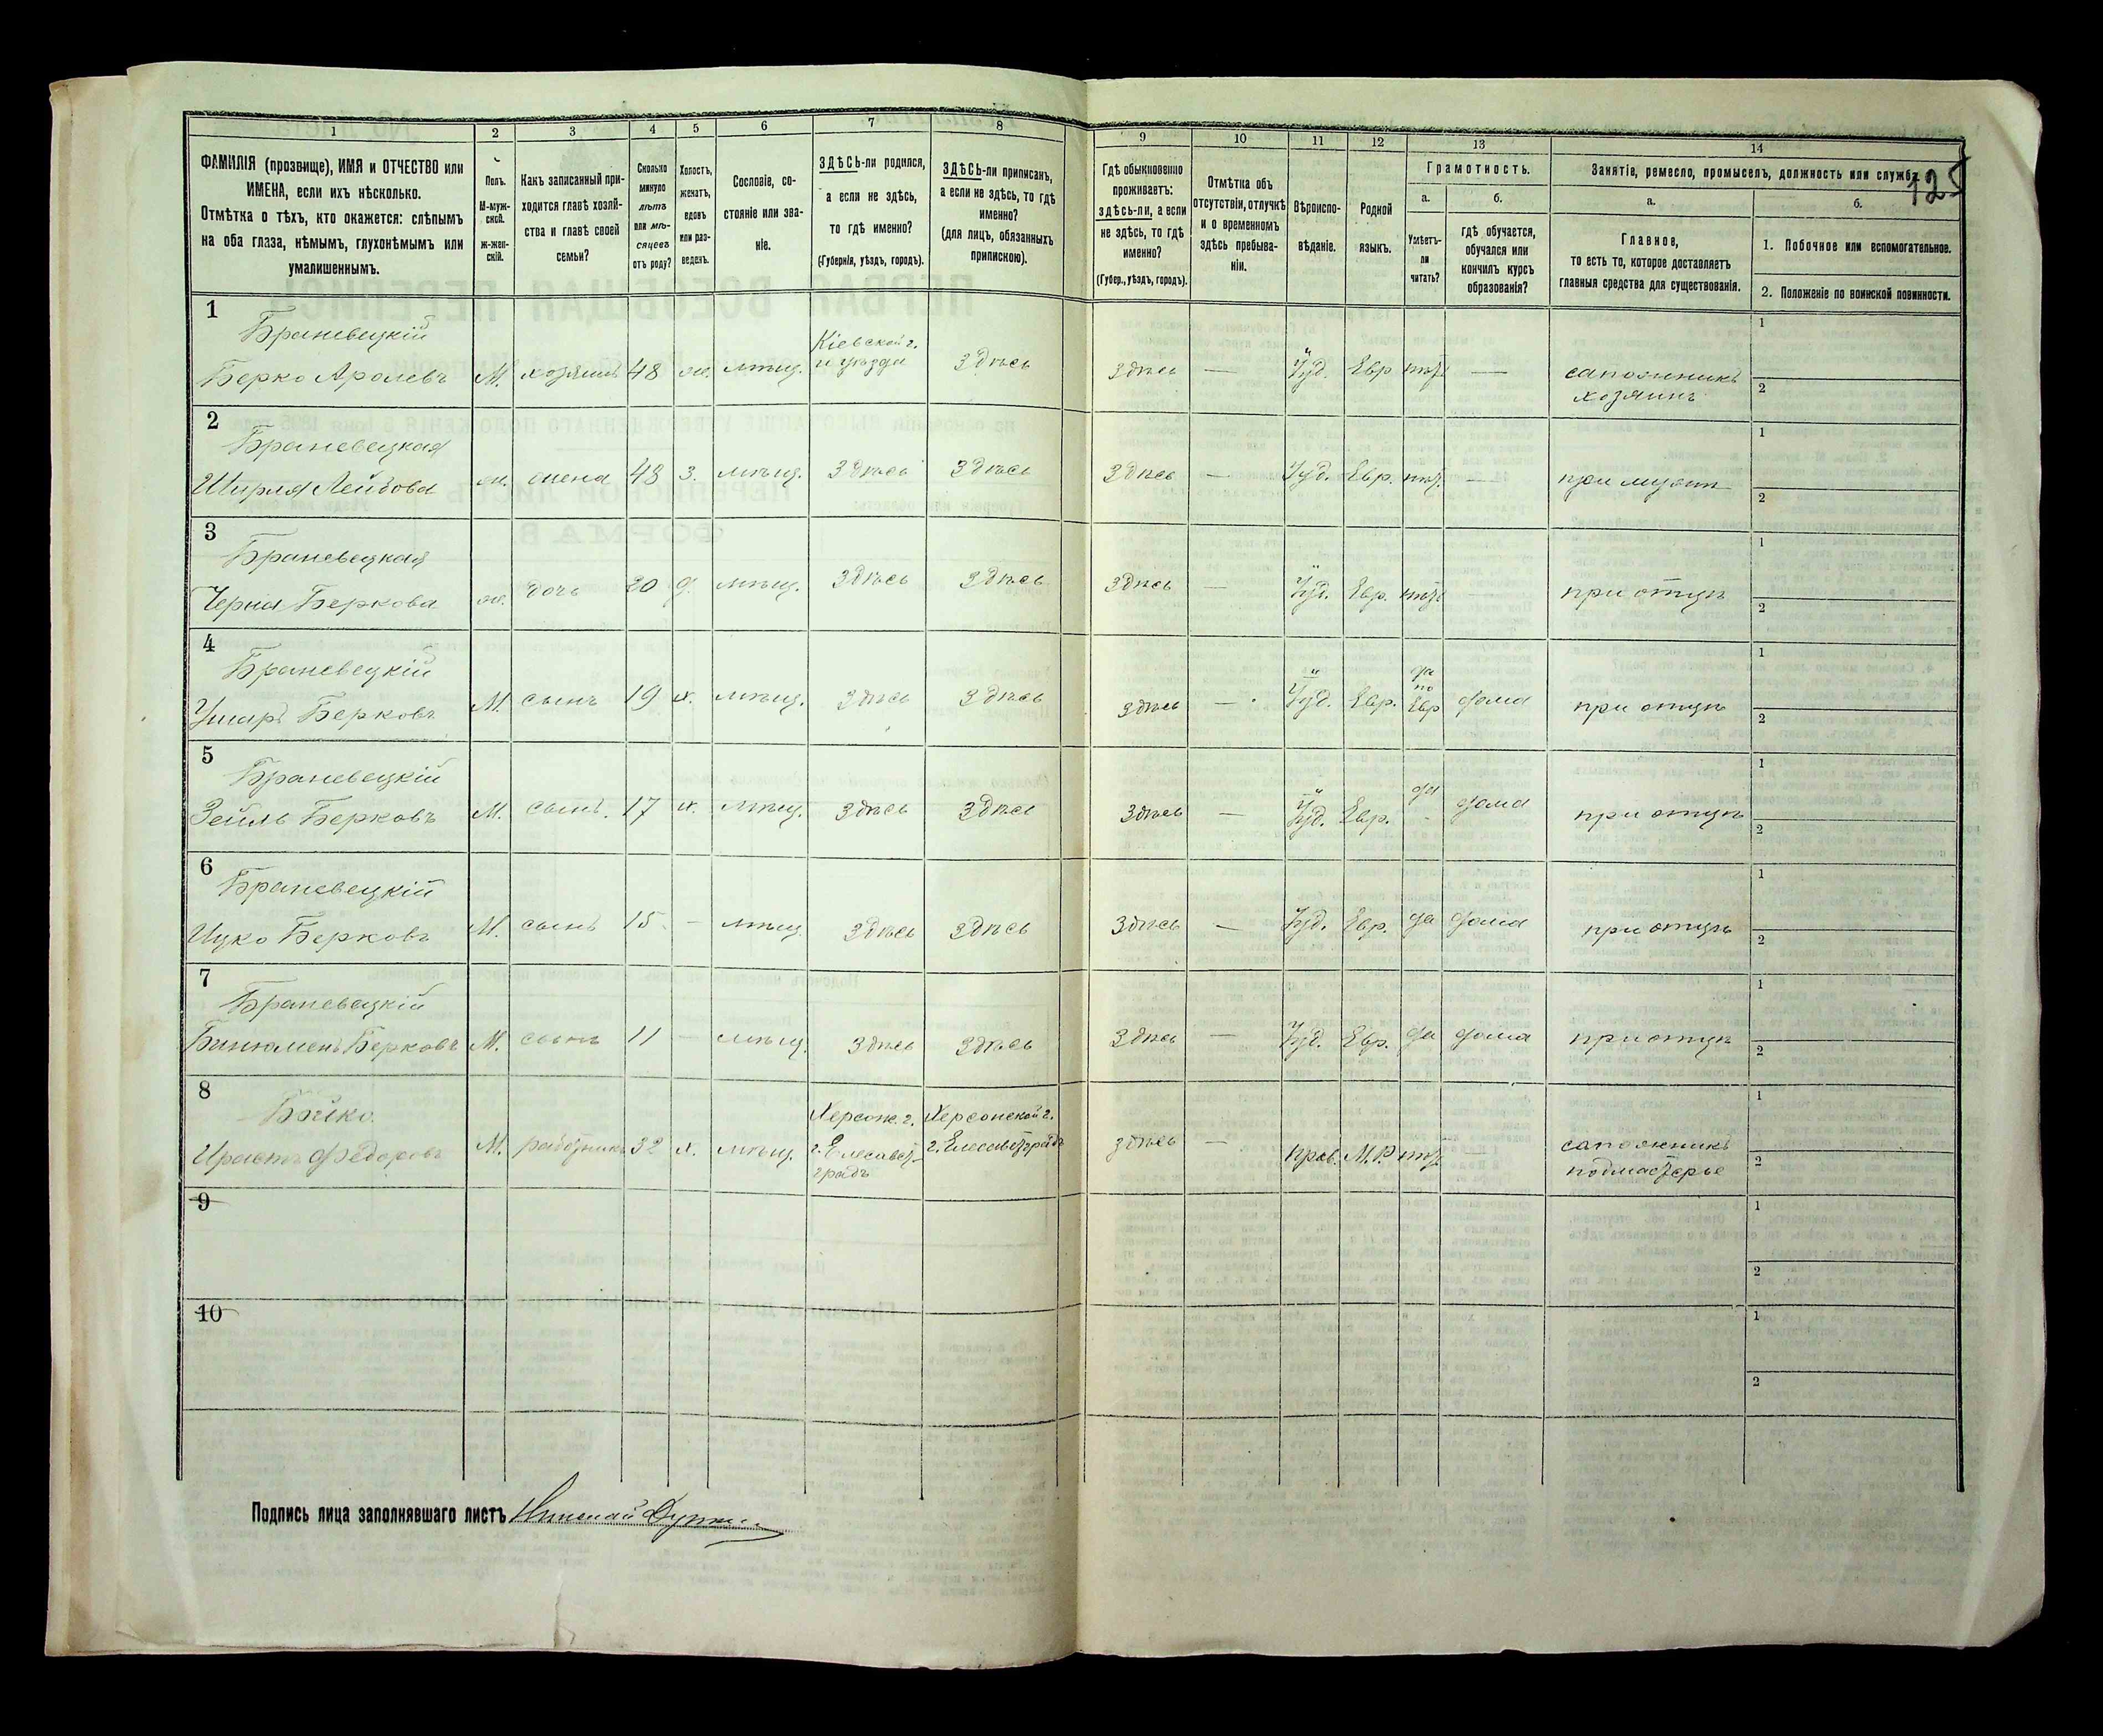 1 2 3 4 5 6 7 8 9 10 11 12 13 14
125
ФАМИЛІЯ (прозвище), ИМЯ и ОТЧЕСТВО или
ИМЕНА, если ихъ нѣсколько.
Отмѣтка о тѣхъ, кто окажется: слѣпымъ
на оба глаза, нѣмымъ, глухонѣмымъ или
умалишеннымъ.
Полъ.
М-муж-
ской.
Ж-жен-
скій.
Какъ записанный при-
ходится главѣ хозяй-
ства и главѣ своей
семьи?
Сколько
минуло
лѣтъ
или мѣ-
сяцевъ
отъ роду?
Холостъ,
женатъ,
вдовъ
или раз-
веденъ.
Сословіе, со-
стояніе или зва-
ніе.
ЗДѢСЬ-ли родился,
а если не здѣсь,
то гдѣ именно?
(Губернія, уѣздъ, городъ).
ЗДѢСЬ-ли приписанъ,
а если не здѣсь, то гдѣ
именно?
(для лицъ, обязанныхъ
припискою).
Гдѣ обыкновенно
проживаетъ:
здѣсь-ли, а если
не здѣсь, то гдѣ
именно?
(Губер., уѣздъ, городъ).
Отмѣтка объ
отсутствіи, отлучкѣ
и о временномъ
здѣсь пребыва-
ніи.
Вѣроиспо-
вѣданіе.
Родной
языкъ.
Грамотность.
а.
Умѣетъ-
ли
читать?
б.
гдѣ обучается,
обучался или
кончилъ курсъ
образованія?
Занятіе, ремесло, промыселъ, должность или служба.
а.
Главное,
то есть то, которое доставляетъ
главныя средства для существованія.
б.
1. Побочное или вспомогательное.
2. Положеніе по воинской повинности.
1
Браневецкій
Берко Ароновъ М. хозяинъ 48 ж. мѣщ.
Кіевской г.
и уѣзда
здѣсь здѣсь — Іуд. Евр нѣт —
сапожникъ
хозяинъ
1
2
2
Браневецкая
Ширля Лейбова ж. жена 48 з. мѣщ. здѣсь здѣсь здѣсь — Іуд. Евр. нѣт. — при мужѣ
1
2
3
Браневецкая
Черна Беркова ж. дочь 20 д. мѣщ. здѣсь здѣсь здѣсь — Іуд. Евр. нѣт — при отцѣ
1
2
4
Браневецкій
Берковъ М. сынъ 19 х. мѣщ. здѣсь здѣсь здѣсь — Іуд. Евр.
да
по
Евр
дома при отцѣ
1
2
5
Браневецкій
Зейль Берковъ М. сынъ. 17 х. мѣщ. здѣсь здѣсь здѣсь — Іуд. Евр. да дома при отцѣ
1
2
6
Браневецкій
Ицко Берковъ М. сынъ 15 — мѣщ. здѣсь здѣсь здѣсь — Іуд. Евр. да дома при отцѣ
1
2
7
Браневецкій
Биньоменъ Берковъ М. сынъ 11 — мѣщ. здѣсь здѣсь здѣсь — Іуд. Евр. да дома при отцѣ
1
2
8
Бойко.
Федоровъ М. работникъ 32 х. мѣщ.
Херсон. г.
г. Елесавет-
градъ
Херсонской г.
г. Елесаветградъ
здѣсь — прав. М.Р. нѣт —
сапожникъ
подмастерье
1
2
9
1
2
10
1
2
Подпись лица заполнявшаго листъ Николай